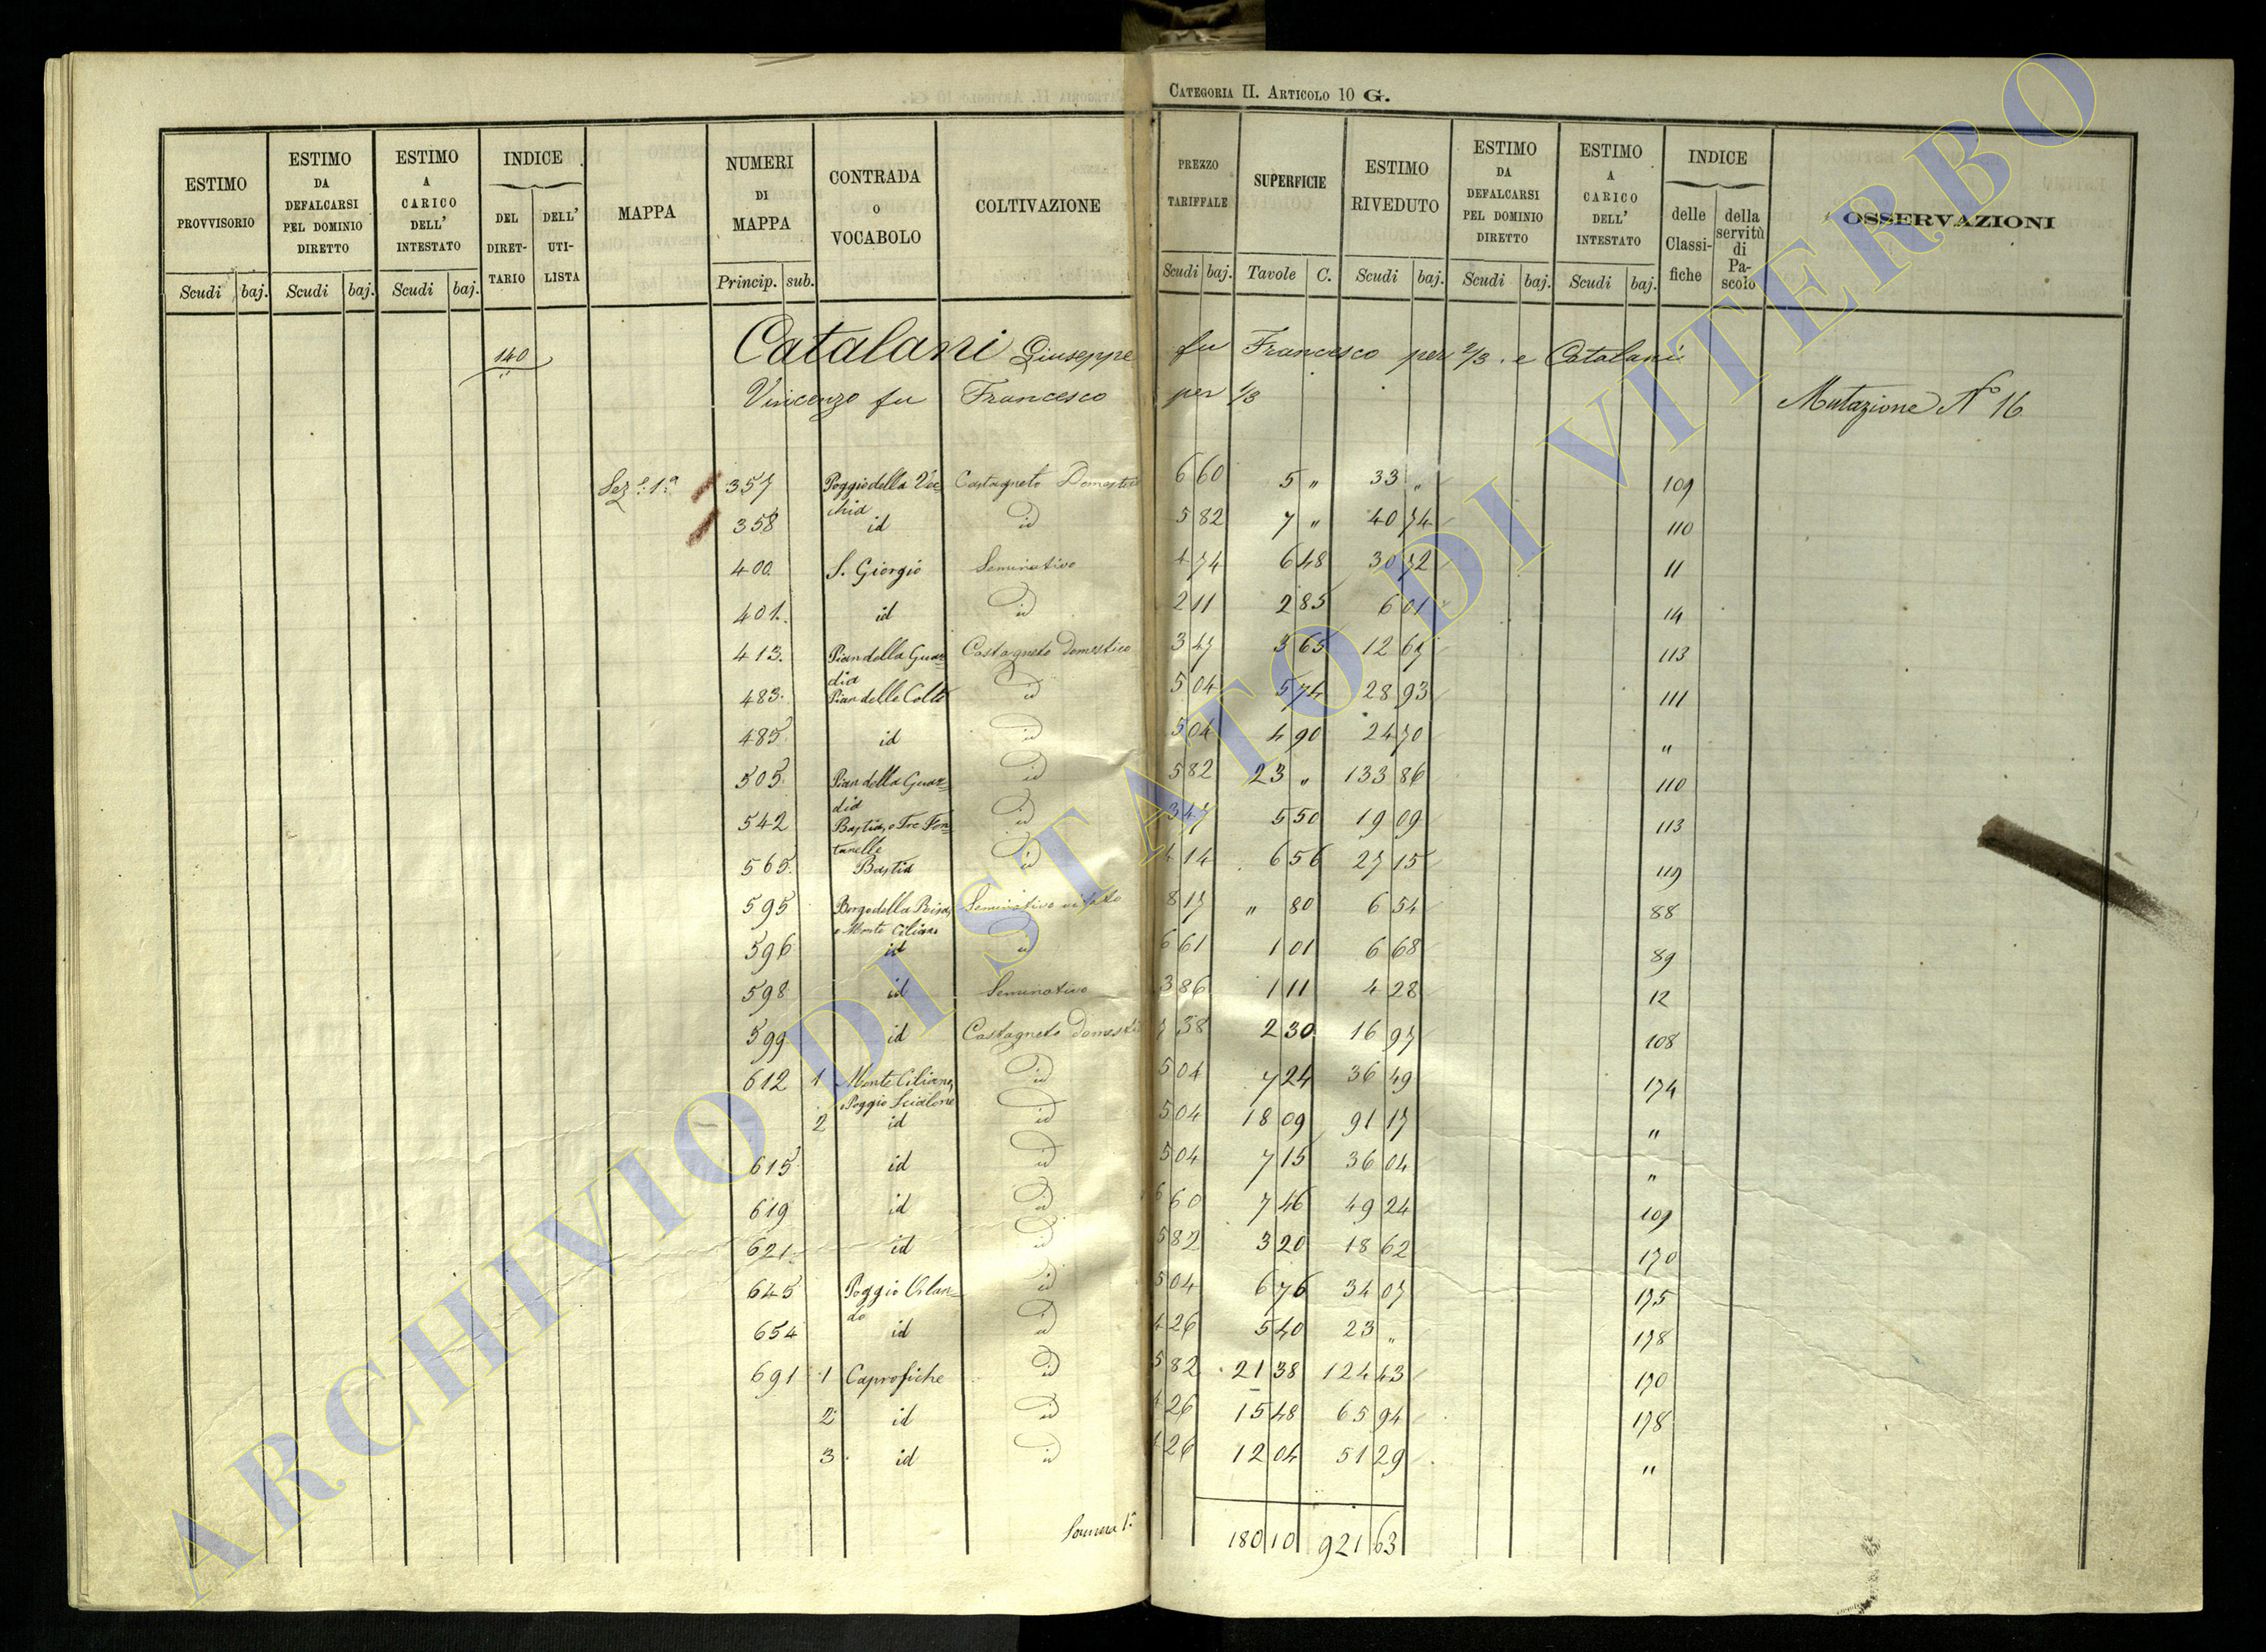 CATEGORIA II. ARTICOLO 10 G.
ESTIMO PROVVISORIO | ESTIMO DA DEFALCARSI PEL DOMINIO DIRETTO | ESTIMO A CARICO DELL' INTESTATO | INDICE DEL DIRET-TARIO | DELL' UTI-LISTA | MAPPA | NUMERI DI MAPPA | CONTRADA O VOCABOLO | COLTIVAZIONE | PREZZO TARIFFALE | SUPERFICIE | ESTIMO RIVEDUTO | ESTIMO DA DEFALCARSI PEL DOMINIO DIRETTO | ESTIMO A CARICO DELL' INTESTATO | INDICE delle Classi-fiche | della servitù di Pa-scolo | OSSERVAZIONI
Scudi baj. Scudi baj. Scudi baj. Princip. sub. Scudi baj. Tavole C. Scudi baj. Scudi baj. Scudi baj.
140 Catalani Giuseppe fu Francesco per 2/3. e Catalani
Vincenzo fu Francesco per 1/3 Mutazione No 16
Seze. 1a 357 Poggio della Vec-chia Castagneto Domestico 6 60 5 " 33 " 109
358 id id 5 82 7 " 40 74 110
400. S. Giorgio Seminativo 4 74 6 48 30 72 11
401. id id 2 11 2 85 6 01 14
413. Pian della Guar-dia Castagneto domestico 3 47 3 65 12 67 113
483. Pian delle Colte id 5 04 5 74 28 93 111
485. id id 5 04 4 90 24 70 "
505. Pian della Guar-dia id 5 82 23 " 133 86 110
542 Bastia, e Tre Fon-tanelle id 3 47 5 50 19 09 113
565. Bastia id 4 14 6 56 27 15 119
595 Borgo della Peisa, e Monte Ciliano Seminativo vitato 8 17 " 80 6 54 88
596 id id 6 61 1 01 6 68 89
598 id Seminativo 3 86 1 11 4 28 12
599 id Castagneto domesti 7 38 2 30 16 97 108
612 1 Monte Ciliano, e Poggio Scialone id 5 04 7 24 36 49 174
2 id id 5 04 18 09 91 17 "
615 id id 5 04 7 15 36 04 "
619 id id 6 60 7 46 49 24 109
621. id id 5 82 3 20 18 62 170
645 Poggio Orlan-do id 5 04 6 76 34 07 175
654 id id 4 26 5 40 23 " 178
691 1 Caprofiche id 5 82 21 38 124 43 170
2 id id 4 26 15 48 65 94 178
3. id id 4 26 12 04 51 29 "
Somma 1a 180 10 921 63
ARCHIVIO DI STATO DI VITERBO